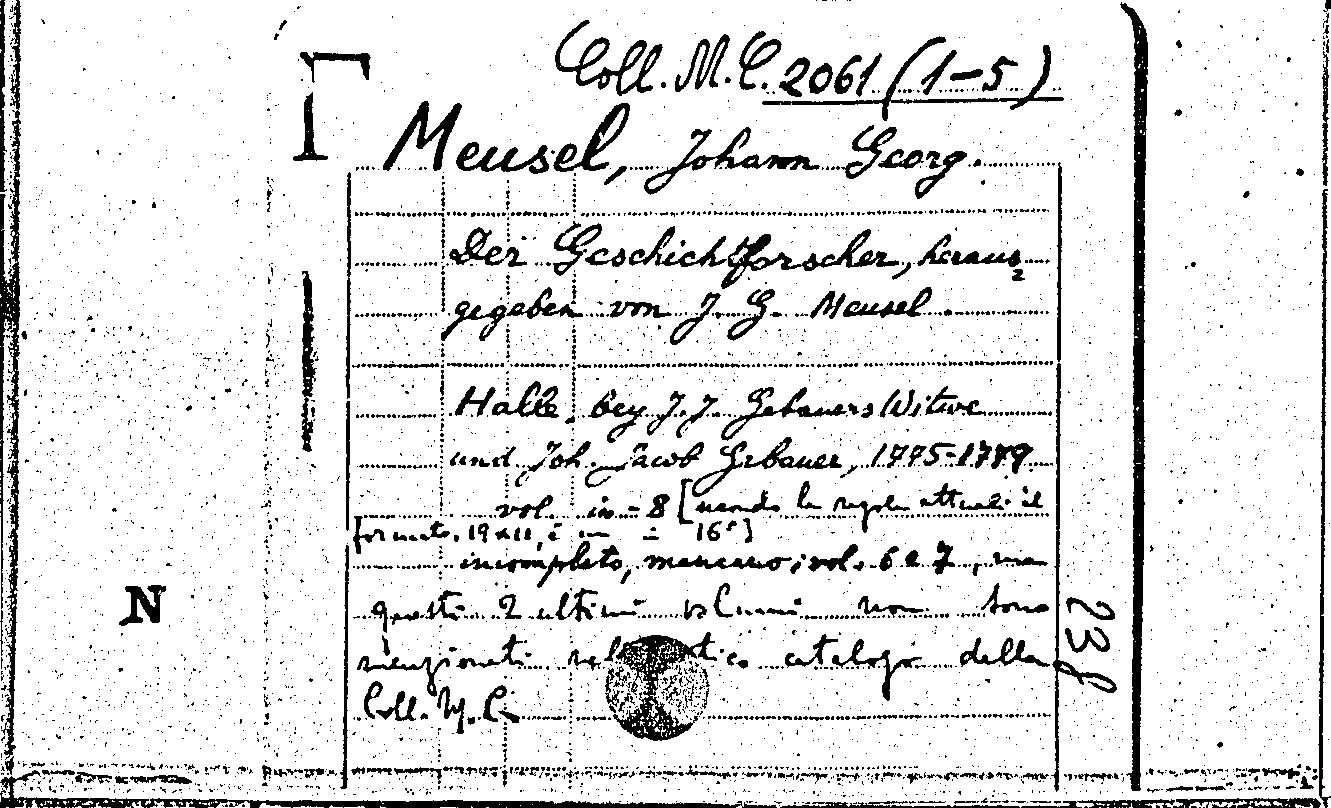 Coll. M.C. 2061 (1-5)
Meusel, Johann Georg.
Der Geschichtforscher, heraus=
gegeben von J. G. Meusel.
Halle, bey J. J. Gebauers Witwe
und Joh. Jacob Gebauer, 1775-1779
vol. in-8 [secondo le regole attuali il
formato, 19x11, è in = 16°]
incompleto, mancano i vol. 6 e 7, ma
questi 2 ultimi volumi non sono
menzionati catalogo della
Coll. M.C.
N